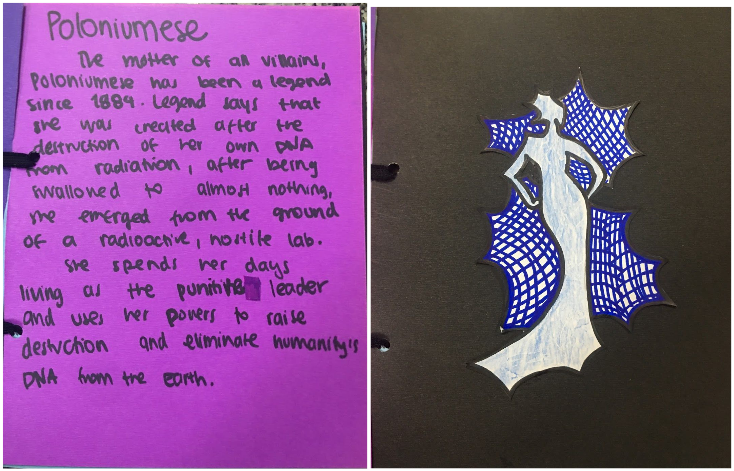 Poloniumese
The mother of all villains,
Poloniumese has been a legend
since 1889. Legend says that
she was created after the
destruction of her own DNA
from radiation, after being
swallowed to almost nothing,
she emerged from the ground
of a radioactive, hostile lab.
She spends her days
living as the punitive leader
and uses her powers to raise
destuction and eliminate humanity's
DNA from the earth.